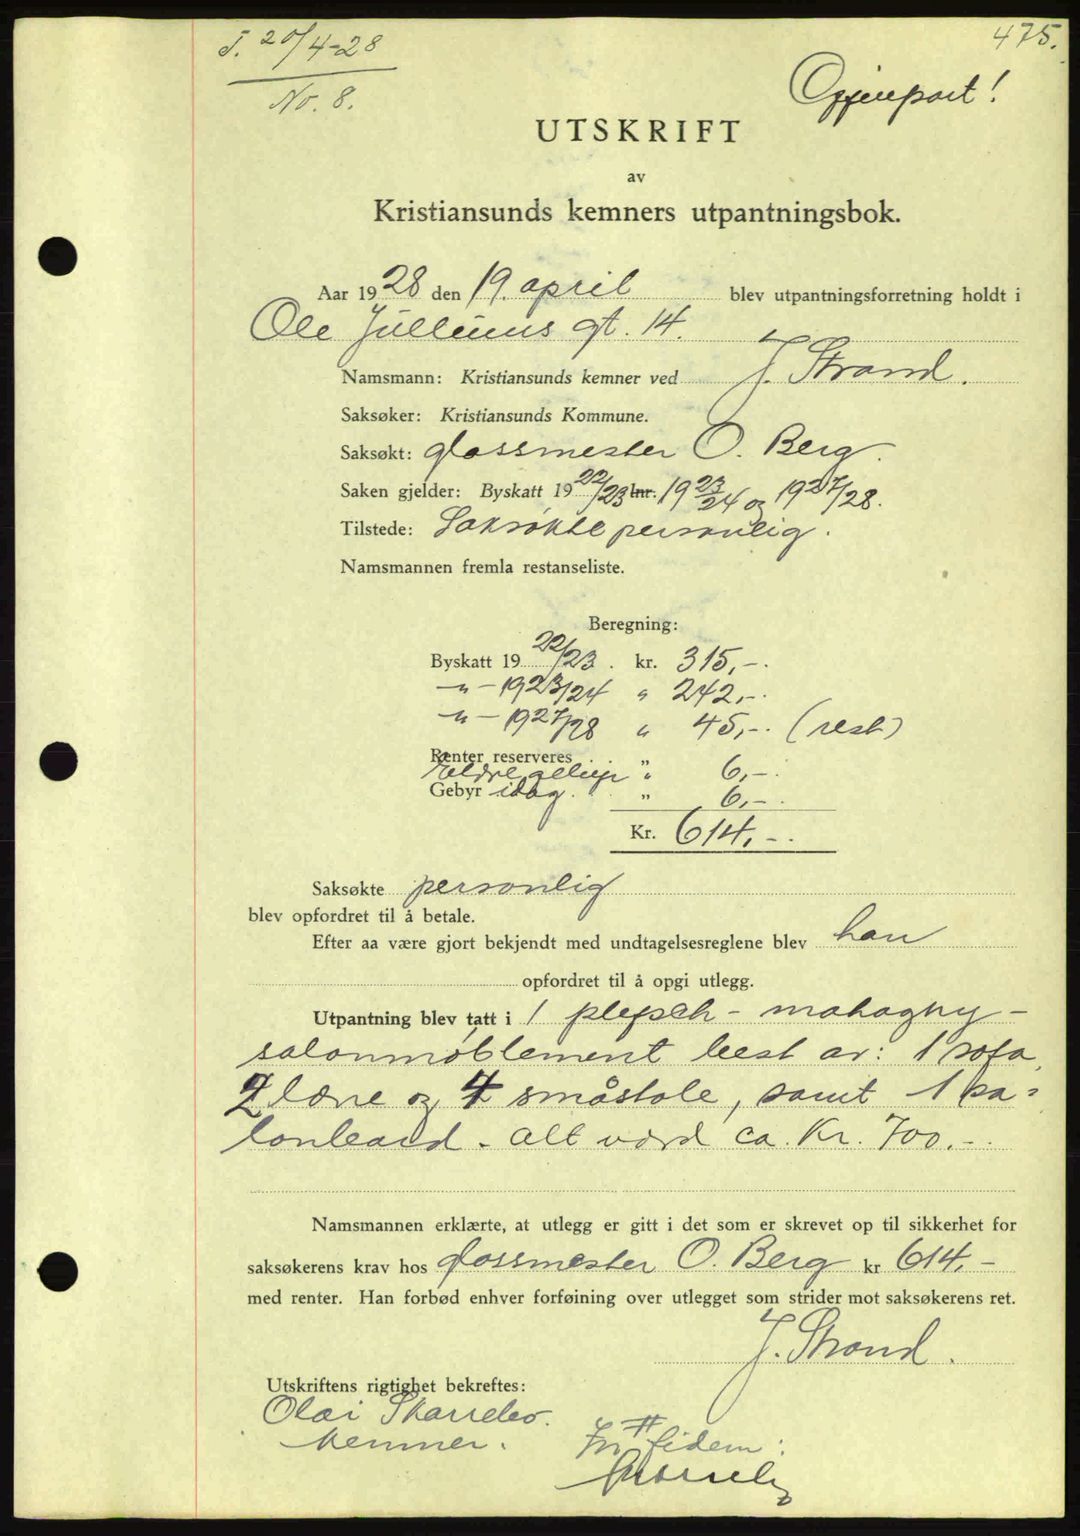 J. 20/4-28
475.
No. 8.
Gjenpart!
UTSKRIFT
av
Kristiansunds kemners utpantningsbok.
Aar 1928 den 19. april blev utpantningsforretning holdt i
Ole Jullums gt. 14.
Namsmann: Kristiansunds kemner ved J. Strand.
Saksøker: Kristiansunds Kommune.
Saksøkt: glassmester O. Berg.
Saken gjelder: Byskatt 1922/23 lnr. 1923/24 og 1927/28.
Tilstede: Saksøkte personlig.
Namsmannen fremla restanseliste.
Beregning:
Byskatt 1922/23. kr. 315,-.
-"- 1923/24 " 242,-.
-"- 1927/28 " 45,-. (rest)
Renter reserveres . . "
Eldre gebyr " 6,-.
Gebyr idag . . " 6,-.
Kr. 614,-.
Saksøkte personlig
blev opfordret til å betale.
Efter aa være gjort bekjendt med undtagelsesreglene blev han
opfordret til å opgi utlegg.
Utpantning blev tatt i 1 plysch-mahogny-
salonmøblement best av: 1 sofa,
2 læne og 4 småstole, samt 1 sa=
lonbord. alt værd ca. Kr. 700.-.
Namsmannen erklærte, at utlegg er gitt i det som er skrevet op til sikkerhet for
saksøkerens krav hos glassmester O. Berg kr 614,-
med renter. Han forbød enhver forføining over utlegget som strider mot saksøkerens ret.
J. Strand.
Utskriftens rigtighet bekreftes:
Olai
kemner.
In fidem: